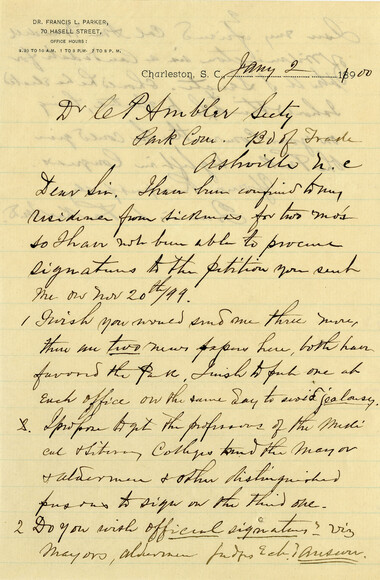 DR. FRANCIS L. PARKER,
70 HASELL STREET,
OFFICE HOURS:
Charleston, S. C. Jany 2 1900
Dr C P Ambler Secty
Park Com. Bd of Trade
Ashville N. C
Dear Sir. I have been confined to my
residence from sickness for two mos
so I have not been able to procure
signatures to the petition you sent
me on Nov 20th/99.
1 I wish you would send me three more,
there are two news papers here, both have
favored the Park. I wish to put one at
each office on the same day to avoid jealousy.
I propose to get the professors of the Medi
cal & Literary Colleges and the Mayor
& aldermen & other distinguished
persons to sign on the third one.
2 Do you wish official signatures viz
Mayors, aldermen Judges Answer.